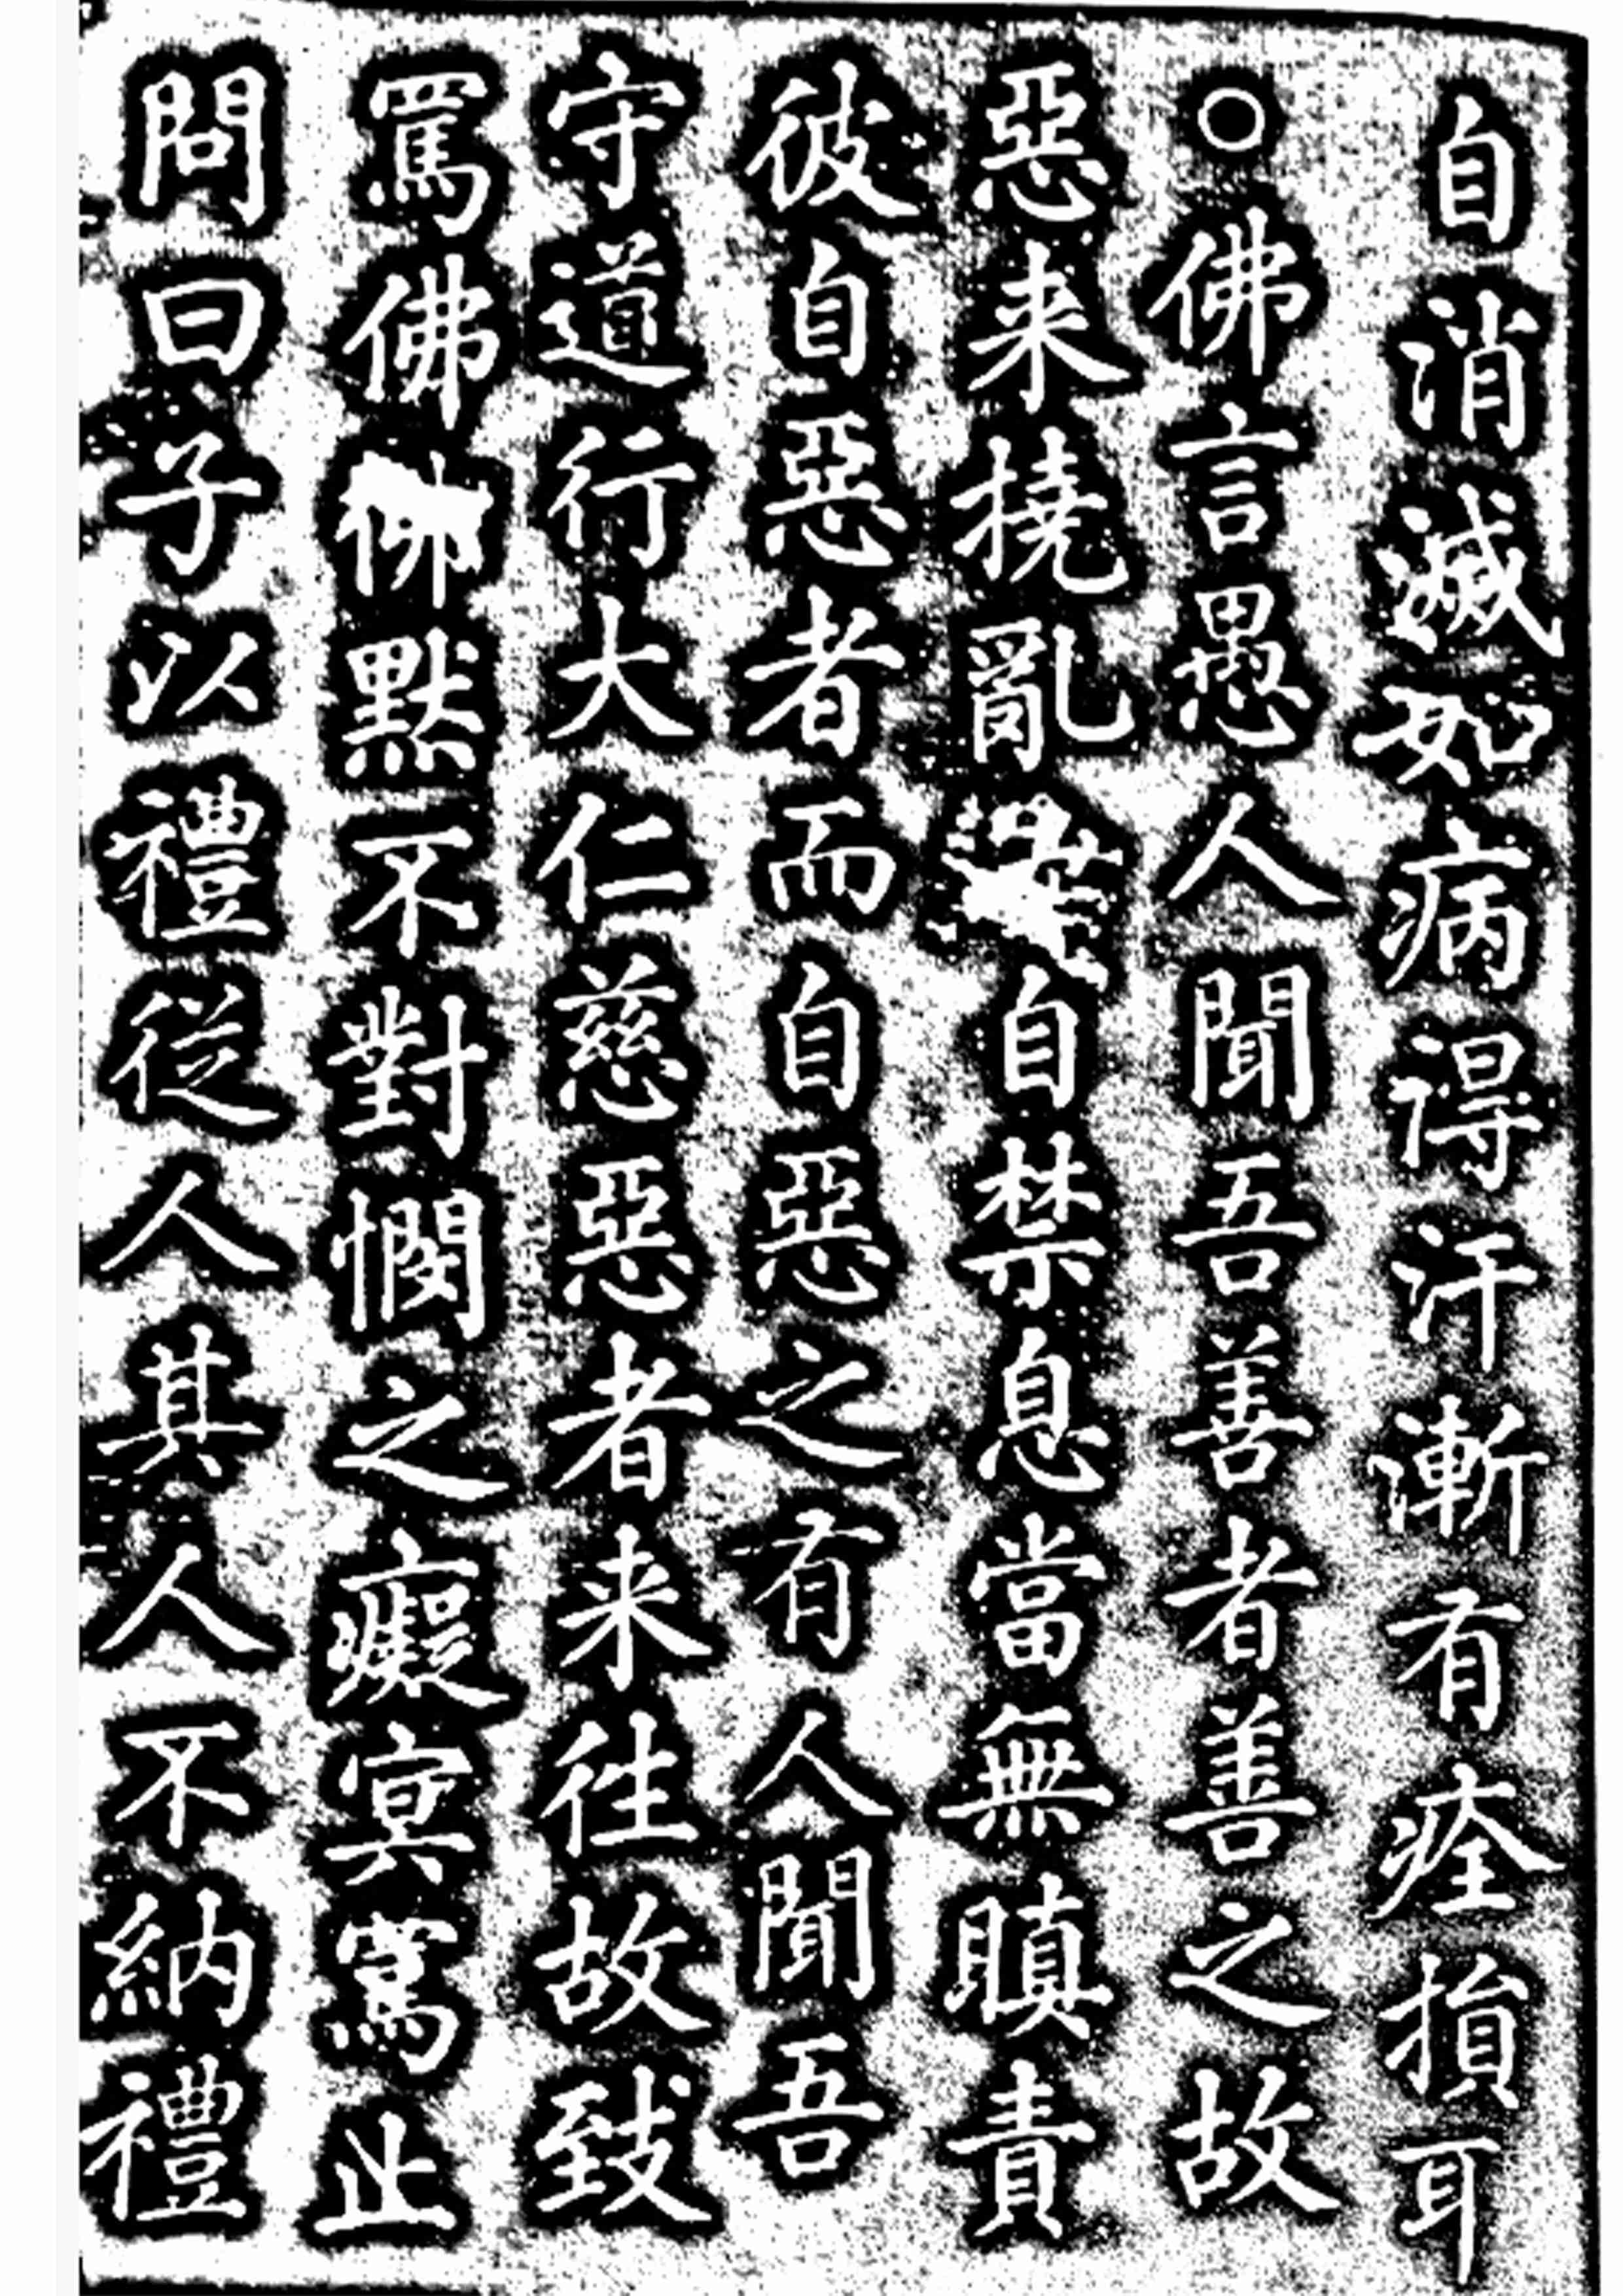 自消滅如病得汗漸有痊損耳
○佛言愚人聞吾善者善之故
惡来撓亂自禁息當無瞋責
彼自惡者而自惡之有人聞吾
守道行大仁慈惡者来往故致
罵佛佛黙不對憫之癡冥罵止
問曰子以禮従人其人不納禮